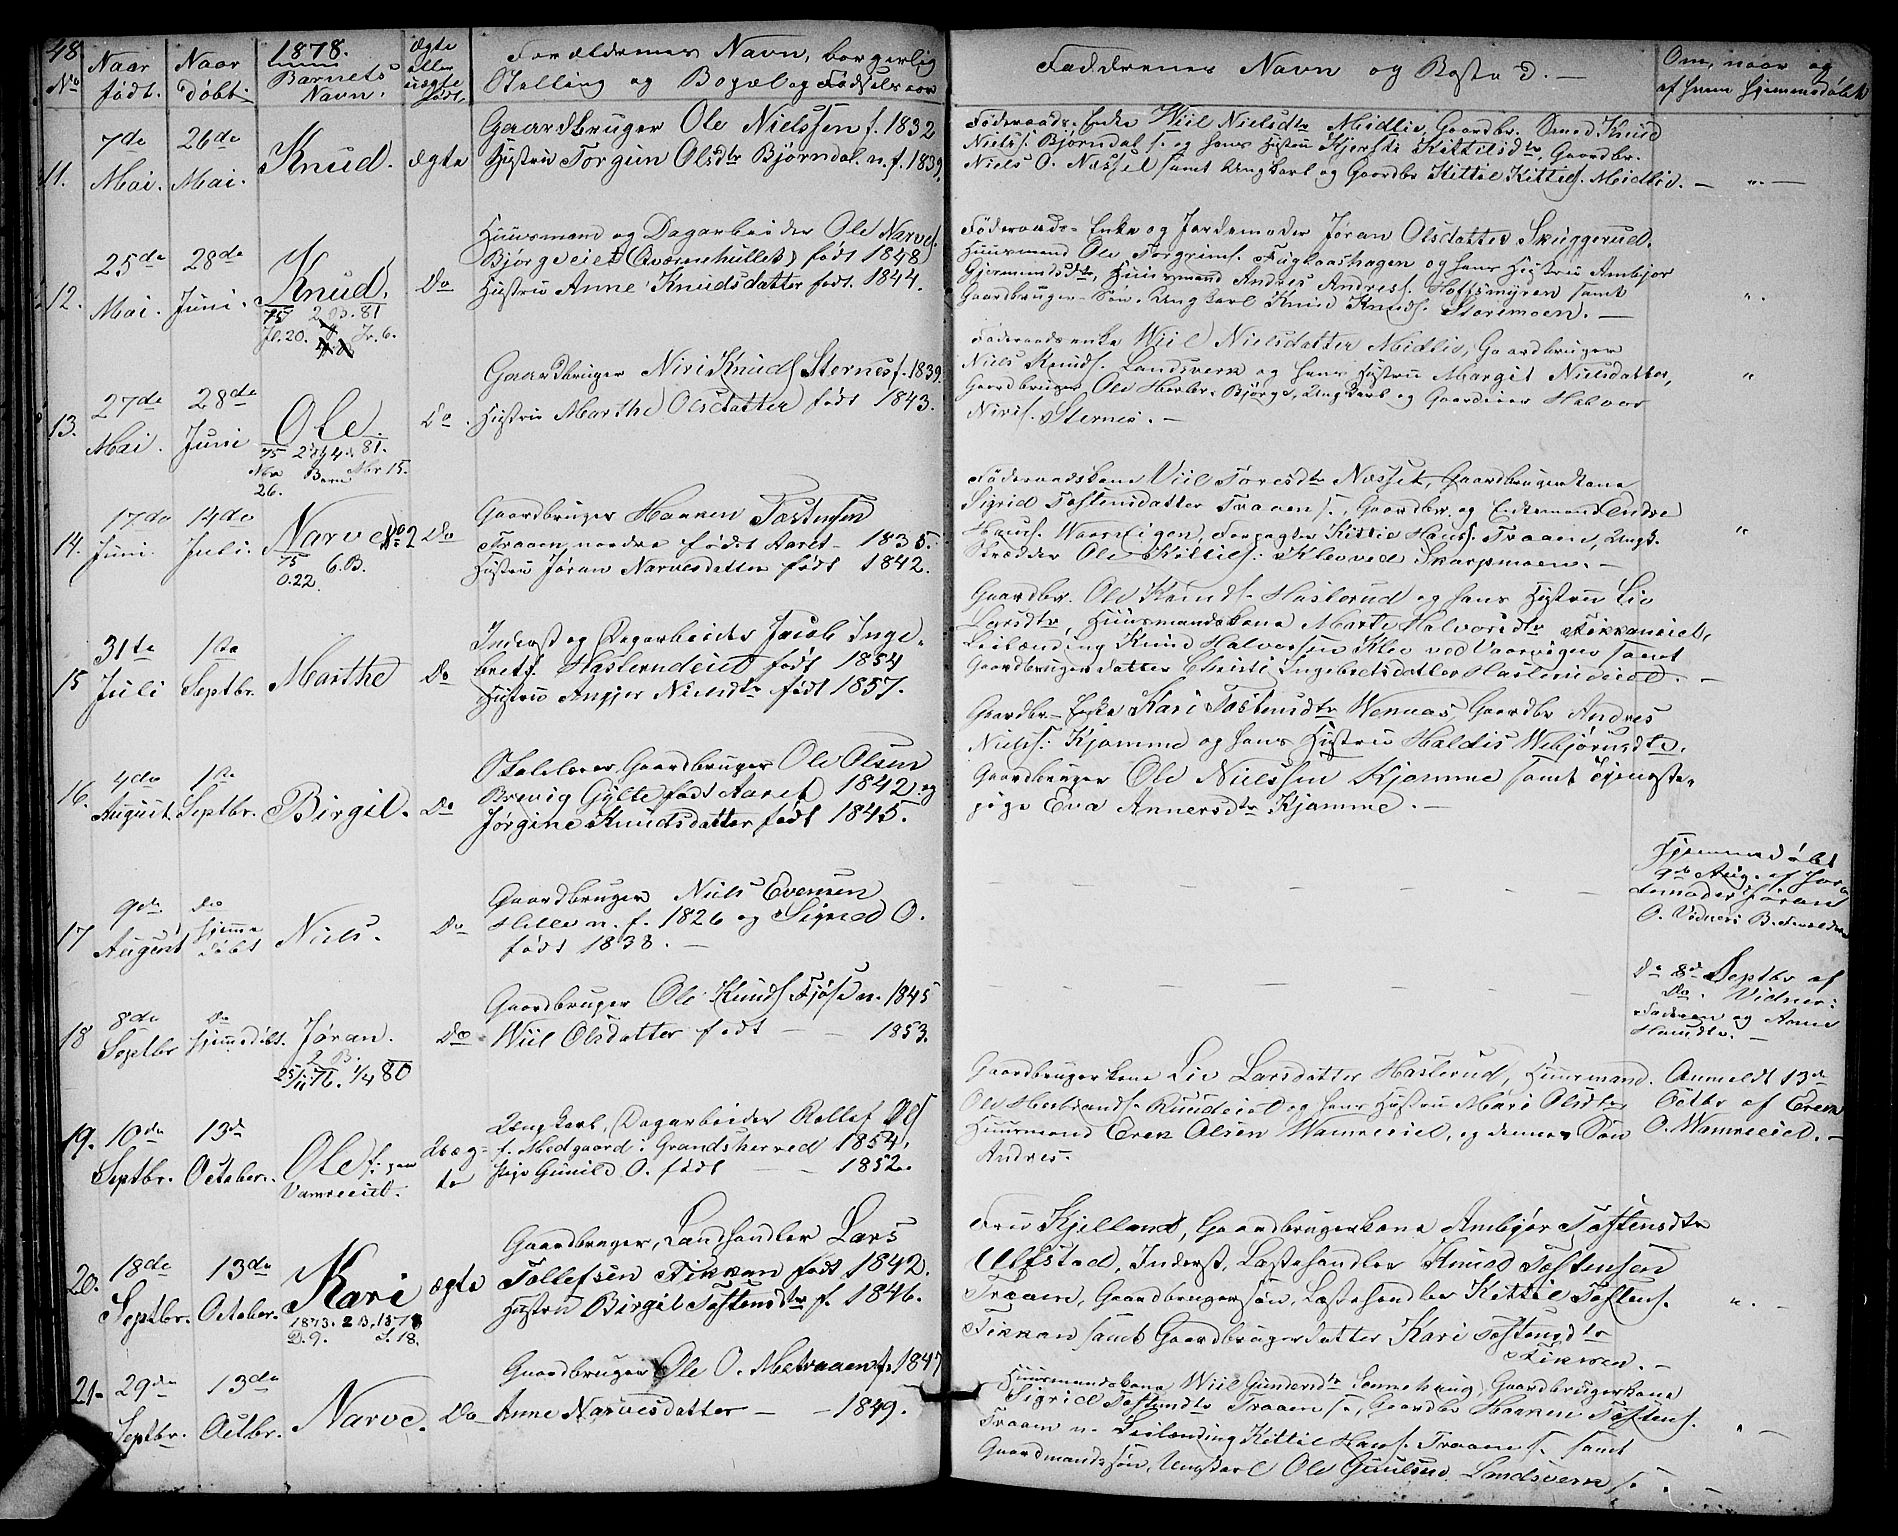 48
1878.
No Naar født. Naar døbt. Barnets Navn. Ægte eller uægte født. Forældrenes Navn, borgerlig
Stilling og Bopæl og Fødselsaar
Faddernes Navn og Bosted. —
Om, naar og
af hvem hjemmedøbt
11. 7de Mai. 26de Mai. Knud. ægte
Gaardbruger Ole Nielssen f. 1832
Hustru Torgun Olsdtr Bjørndal n. f. 1839.
Føderaads-Enke Wiil Nielsdtr Midlie, Gaardbr. Smed Knud
Niels. Bjørndal s. og hans Hustru Kjersti Kittilsdtr, Gaardbr.
Niels O. Næsset samt Ungkarl og Gaardbr Kittil Kittels. Midlie. — „ —
12. 25de Mai. 28de Juni. Knud. Do
75 2 B. 81
Jl. 20. Jr. 6.
Huusmand og Dagarbeider Ole Narves.
Bjørgeeiet (Qværnehullet) født 1848
Hustru Anne Knudsdatter født 1844.
Føderaads-Enke og Jordemoder Jøran Olsdatter Skuggerud,
Huusmand Ole Torgrims. Fuglaashagen og hans Hustru Ambjør
Gjermundsdtr, Huusmand Andres Andres. Hoffsmyren samt
Gaardbruger-Søn, Ungkarl Knud Knuds. Stormoen. —
„
13. 27de Mai. 28de Juni Ole. Do.
75 81.
26. Nbr 15.
Gaardbruger Niri Knuds Sternes f. 1839.
Hustru Marthe Olsdatter født 1843.
Føderaadsenke Wiil Nielsdatter Midlie, Gaardbruger
Niels Knuds. Landsverk og hans Hustru Margit Nielsdatter,
Gaardbruger Ole Herbr. Bjørge, Ungkarl og Gaardeier Halvor
Niris. Sternes. —
„
14. 17de Juni. 14de Juli. Narve No 2 Do
75 6. B.
O. 22.
Gaardbruger Haaken Tostensen
Traaen nordre født Aaret 1835.
Hustru Jøran Narvesdatter født 1842.
Føderaadskone Viil Toresdtr Næsset, Gaardbrugerkone
Sigrid Tostensdatter Traaen s., Gaardbr. og Enkemand Endre
Hans. Waarvigen, Forpagter Kittil Hans. Traaen, Ungk.
Skrædder Ole Kittils. Klevved Skarpmoen. —
„
15 31te Juli 1ste Septbr. Marthe Do
Inderst og Dagarbeider Jacob Inge-
brets. Haslerudeiet født 1854
Hustru Angjer Nielsdtr født 1857.
Gaardbr. Ole Knuds. Haslerud og hans Hustru Liv
Larsdtr, Huusmandskone Marte Halvorsdtr Fikkaneiet,
Leilænding Knud Halvorssen Klev ved Vaarvigen samt
Gaardbrugerdatter Christi Ingebretsdatter Haslerudeiet. —
16. 4de August 1ste Septbr. Birgit. Do
Skolelærer, Gaardbruger Ole Olsen
Brevig Gylte født Aaret 1842 og
Jørgine Knudsdatter født 1845.
Gaardbr-Enke Kari Tostensdtr Wennas, Gaardbr Andres
Niels. Kjomme og hans Hustru Haldis Webjørnsdtr.
Gaardbruger Ole Nielssen Kjomme samt Tjeneste-
pige Eva Annersdtr Kjomme. —
17 9de August Do hjemmedøbt Niels. Do
Gaardbruger Niels Evensen
Helle n. f. 1826 og Signed O.
født 1838. —
Hjemmedøbt
9de Aug. af Jor-
demoder Jøran
O. Vidner: B. Forældre
18 8de Septbr Do hjemmedøbt. Jøran. Do
2 B.
25/11 76. 1/4 80
Gaardbruger Ole Knuds Fjøse n. 1845
Wiil Olsdatter født — — 1853.
Do 8de Septbr af
Do. Vidner:
Faderen og Anne
Knudtr. —
19. 10de Septbr. 13de October. Ole Uæg-te
Vamreeiet.
Ungkarl, Dagarbeider Rollef Ols
f. Medgaard i Gransherred 1854,
Pige Gunild O. født — — 1852.
Gaardbrugerkone Liv Larsdatter Haslerud, Huusmand.
Ole Herbrands. Ruudeiet og hans Hustru Mari Olsdtr,
Huusmand Erek Olsen Wamreeiet, og dennes Søn
Andres.
Anmeldt 13de
Octbr af Erek
O. Wamreeiet. —
20. 18de Septbr. 13de October. Kari ægte
1873. 2 B. 1878
D. 9. S. 18.
Gaardbruger, Landhandler Lars
Tollefsen Fikkan født 1842.
Hustru Birgit Tostensdtr f. 1846.
Fru Kjelland, Gaardbrugerkone Ambjør Tostensdtr
Ulfstad, Inderst, Lastehandler Knud Tostensen
Traaen, Gaardbrugersøn, Lastehandler Kittil Tostens.
Fikkan samt Gaardbrugerdatter Kari Tostensdtr
Fikken. —
„ —
21. 29de Septbr. 13de Octbr. Narve. Do
Gaardbruger Ole O. Metraaen f. 1847
Anne Narvesdatter — — 1849.
Huusmandskone Wiil Gundersdtr Sønnehaug, Gaardbrugerkone
Sigrid Tostensdtr Traaen s., Gaardbr Haaken Tostens.
Traaen n. Leilænding Kittil Hans. Traaen s. samt
Gaardmandssøn, Ungkarl Ole Guulsen Landsverk s. —
„ —